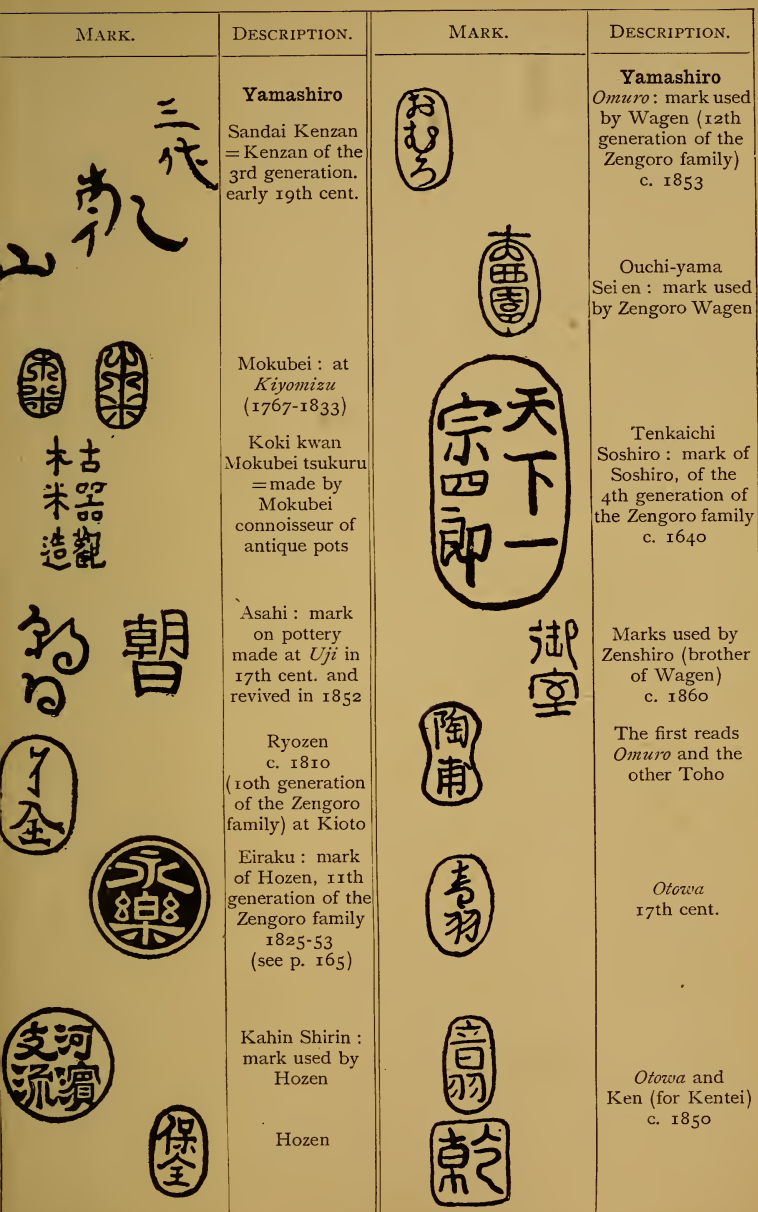 MARK.
DESCRIPTION.
三代
乾
山
Yamashiro
Sandai Kenzan
=Kenzan of the
3rd generation.
early 19th cent.
Mokubei : at
Kiyomizu
(1767-1833)
古器觀
木米造
Koki kwan
Mokubei tsukuru
=made by
Mokubei
connoisseur of
antique pots
朝日
朝日
Asahi : mark
on pottery
made at Uji in
17th cent. and
revived in 1852
了全
Ryozen
c. 1810
(10th generation
of the Zengoro
family) at Kioto
永樂
Eiraku : mark
of Hozen, 11th
generation of the
Zengoro family
1825-53
(see p. 165)
河濱
支流
Kahin Shirin :
mark used by
Hozen
保全
Hozen
MARK.
DESCRIPTION.
おむろ
Yamashiro
Omuro : mark used
by Wagen (12th
generation of the
Zengoro family)
c. 1853
Ouchi-yama
Sei en : mark used
by Zengoro Wagen
天下一
宗四郎
Tenkaichi
Soshiro : mark of
Soshiro, of the
4th generation of
the Zengoro family
c. 1640
御室
陶甫
Marks used by
Zenshiro (brother
of Wagen)
c. 1860
The first reads
Omuro and the
other Toho
音羽
Otowa
17th cent.
音羽
乾
Otowa and
Ken (for Kentei)
c. 1850